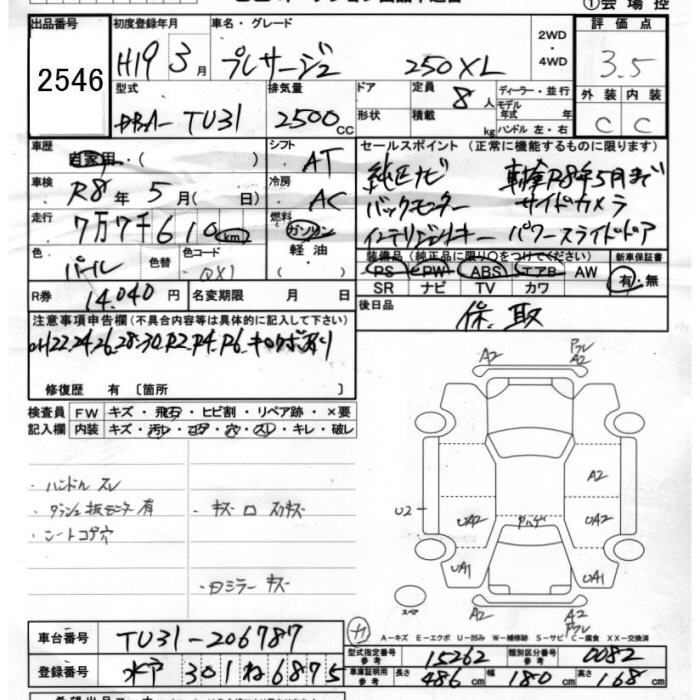 ①会場控
出品番号 初度登録年月 車名・グレード 2WD・4WD 評価点
2546 H19 3月 プレサージュ 250XL 3.5
型式 排気量 ドア 定員 8人 ディーラー・並行 外装 内装
DBA-TU31 2500cc 形状 積載 kg モデル年式 年 ハンドル 左・右 C C
車歴 自家用・( シフト AT セールスポイント (正常に機能するものに限ります)
車検 R8年5月( 日) 冷房 AC 純正ナビ 車検R8年5月まで
走行 7万7千610km 燃料 ガソリン・軽油 バックモニター サイドカメラ
インテリジェントキー パワースライドドア
色 パール 色替 色コード QX1 装備品(純正品に限り○をつけてください) 新車保証書
PS PW ABS エアB AW 有・無
SR ナビ TV カワ
R券 14,040円 名変期限 月 日 後日品 保、取
注意事項申告欄(不具合内容等は具体的に記入して下さい)
H22.24.26.28.30.R2.R4.R6.キロクボあり
修復歴 有〔箇所 〕
検査員 FW キズ・飛石・ヒビ割・リペア跡・×要
記入欄 内装 キズ・汚レ・コゲ・穴・スレ・キレ・破レ
・ハンドル スレ
・ダッシュ板モニター有 ・キズ ロ スリキズ
・シートコゲ穴
・Rミラー キズ
A2 Pクレ A2
A2
U2 UA2 UA2
UA1 UA1
スペア A2 A2 Pクレ
A-キズ E-エクボ U-凹み W-補修跡 S-サビ C-腐食 XX-交換済
車台番号 TU31-206787 型式指定番号 参考 15262 類別区分番号 参考 0082
登録番号 水戸 301 ね 6875 車庫証明用 参考 長さ 486cm 幅 180cm 高さ 168cm